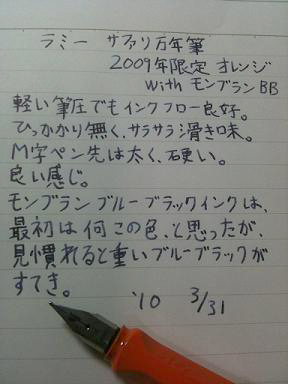 ラミー サファリ万年筆
2009年限定 オレンジ
with モンブラン BB
軽い筆圧でもインクフロー良好。
ひっかかり無く、サラサラ滑き味。
M字ペン先は太く、硬い。
良い感じ。
モンブラン ブルーブラックインクは、
最初は何この色、と思ったが、
見慣れると重いブルーブラックが
すてき。
'10 3/31